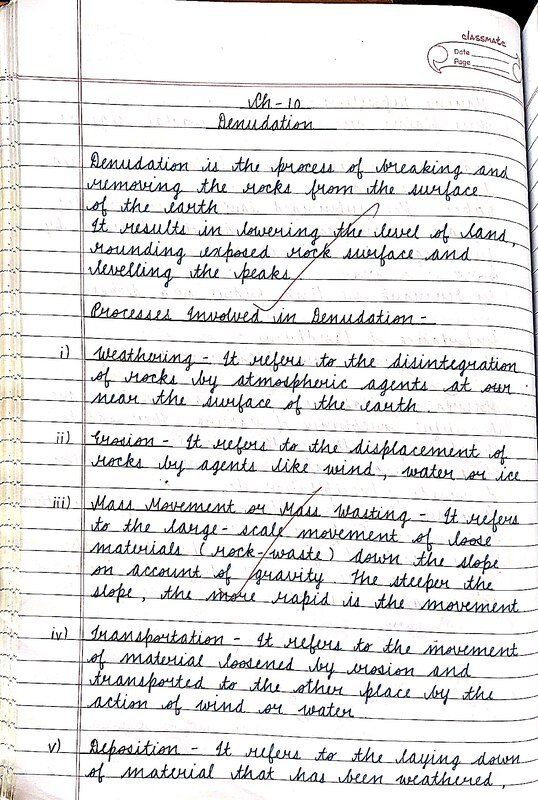 classmate
Date
Page
Ch - 10
Denudation
Denudation is the process of breaking and
removing the rocks from the surface
of the earth
It results in lowering the level of land,
rounding exposed rock surface and
levelling the peaks
Processes Involved in Denudation -
i) Weathering - It refers to the disintegration
of rocks by atmospheric agents at our
near the surface of the earth.
ii) Erosion - It refers to the displacement of
rocks by agents like wind, water or ice
iii) Mass Movement or Mass Wasting - It refers
to the large-scale movement of loose
materials (rock-waste) down the slope
on account of gravity The steeper the
slope, the more rapid is the movement
iv) Transportation - It refers to the movement
of material loosened by erosion and
transported to the other place by the
action of wind or water
v) Deposition - It refers to the laying down
of material that has been weathered,